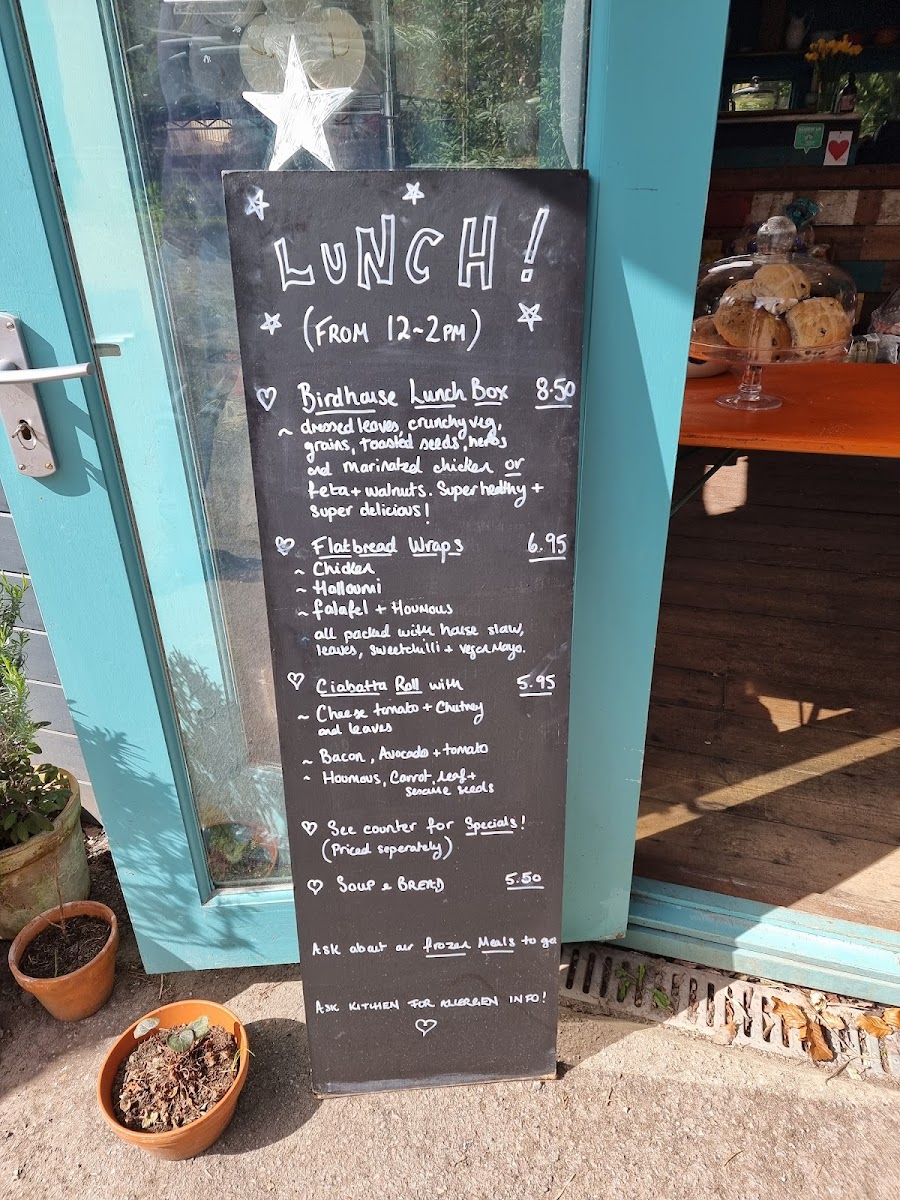 LUNCH!
(FROM 12~2PM)
Birdhouse Lunch Box 8.50
~ dressed leaves, crunchy veg,
grains, toasted seeds, herbs
and marinated chicken or
feta + walnuts. Super healthy +
super delicious!
Flatbread Wraps 6.95
~ Chicken
~ Halloumi
~ falafel + Houmous
all packed with house slaw,
leaves, sweetchilli + vegan mayo.
Ciabatta Roll with 5.95
~ Cheese tomato + Chutney
and leaves
~ Bacon, Avocado + tomato
~ Houmous, Carrot, leaf +
sesame seeds
See counter for Specials!
(Priced seperately)
Soup & BREAD 5.50
Ask about our frozen Meals to go
ASK KITCHEN FOR ALLERGEN INFO!